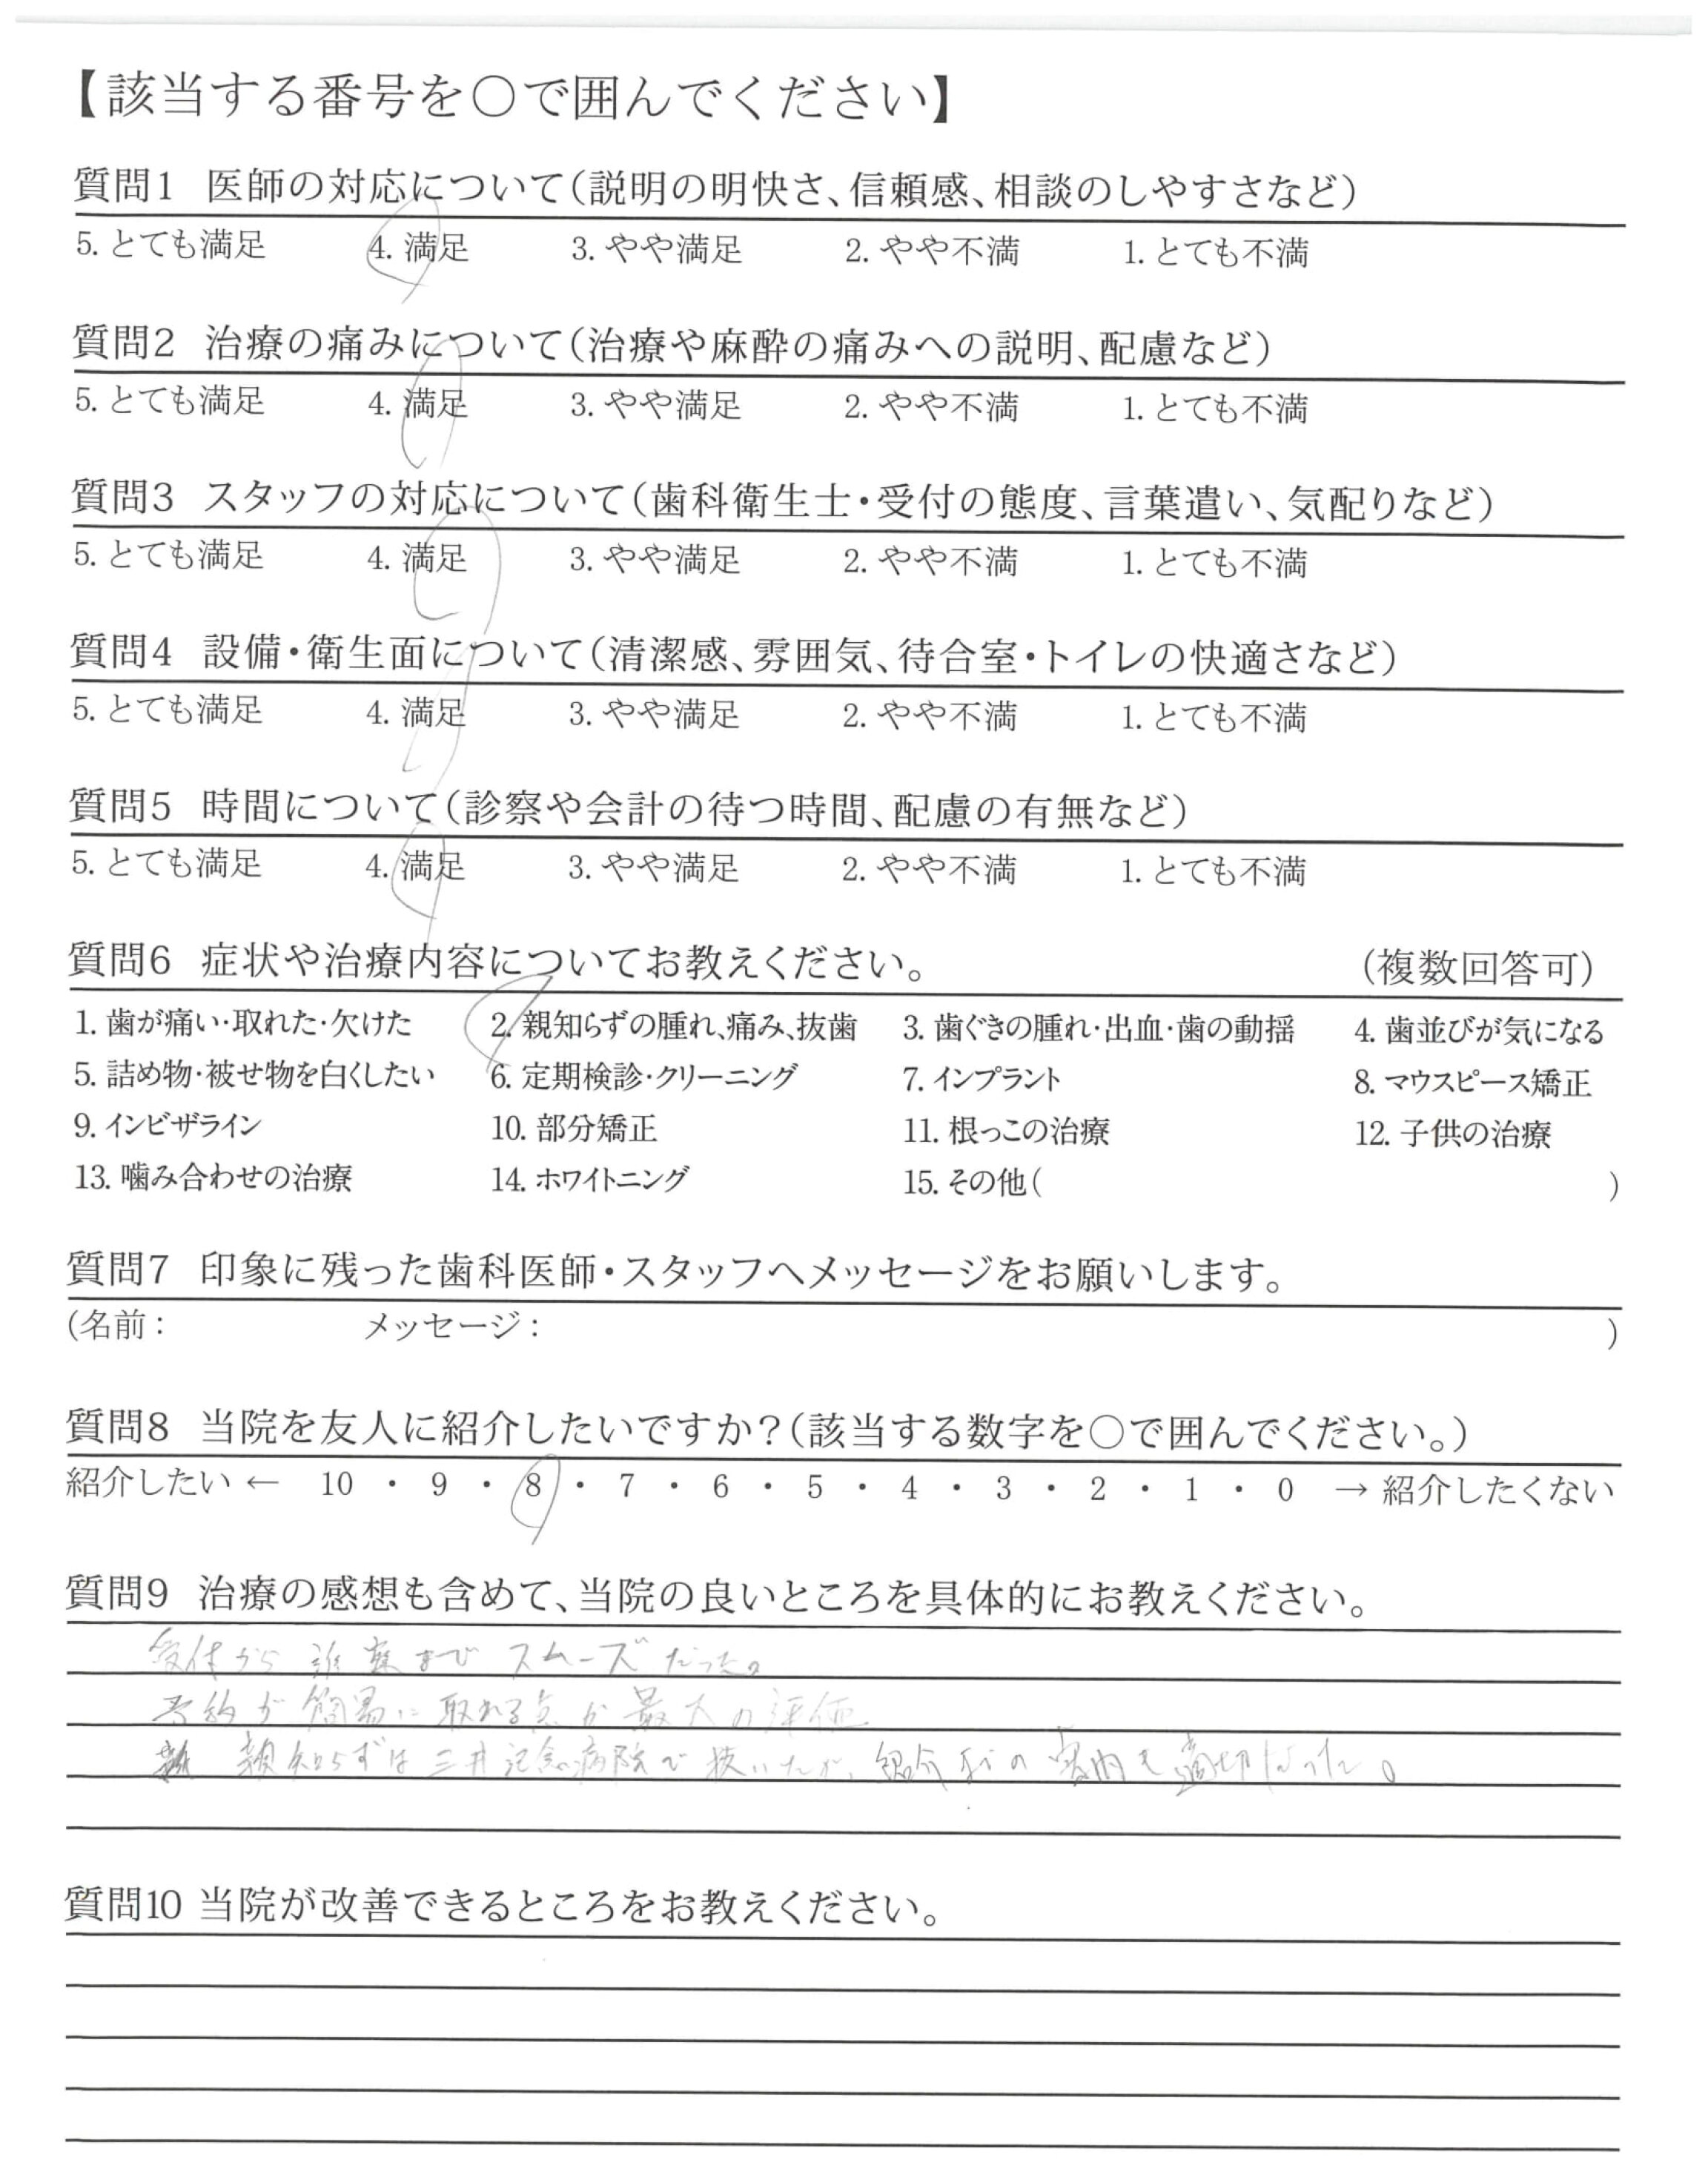 【該当する番号を○で囲んでください】
質問1 医師の対応について(説明の明快さ、信頼感、相談のしやすさなど)
5. とても満足 4. 満足 3. やや満足 2. やや不満 1. とても不満
質問2 治療の痛みについて(治療や麻酔の痛みへの説明、配慮など)
5. とても満足 4. 満足 3. やや満足 2. やや不満 1. とても不満
質問3 スタッフの対応について(歯科衛生士・受付の態度、言葉遣い、気配りなど)
5. とても満足 4. 満足 3. やや満足 2. やや不満 1. とても不満
質問4 設備・衛生面について(清潔感、雰囲気、待合室・トイレの快適さなど)
5. とても満足 4. 満足 3. やや満足 2. やや不満 1. とても不満
質問5 時間について(診察や会計の待つ時間、配慮の有無など)
5. とても満足 4. 満足 3. やや満足 2. やや不満 1. とても不満
質問6 症状や治療内容についてお教えください。 (複数回答可)
1. 歯が痛い・取れた・欠けた 2. 親知らずの腫れ、痛み、抜歯 3. 歯ぐきの腫れ・出血・歯の動揺 4. 歯並びが気になる
5. 詰め物・被せ物を白くしたい 6. 定期検診・クリーニング 7. インプラント 8. マウスピース矯正
9. インビザライン 10. 部分矯正 11. 根っこの治療 12. 子供の治療
13. 噛み合わせの治療 14. ホワイトニング 15. その他( )
質問7 印象に残った歯科医師・スタッフへメッセージをお願いします。
(名前: メッセージ: )
質問8 当院を友人に紹介したいですか?(該当する数字を○で囲んでください。)
紹介したい ← 10 ・ 9 ・ 8 ・ 7 ・ 6 ・ 5 ・ 4 ・ 3 ・ 2 ・ 1 ・ 0 → 紹介したくない
質問9 治療の感想も含めて、当院の良いところを具体的にお教えください。
受付から診察までスムーズだった。
予約が簡易に取れる点が最大の評価
親知らずは三井記念病院で抜いたが、紹介までの案内も適切だった。
質問10 当院が改善できるところをお教えください。